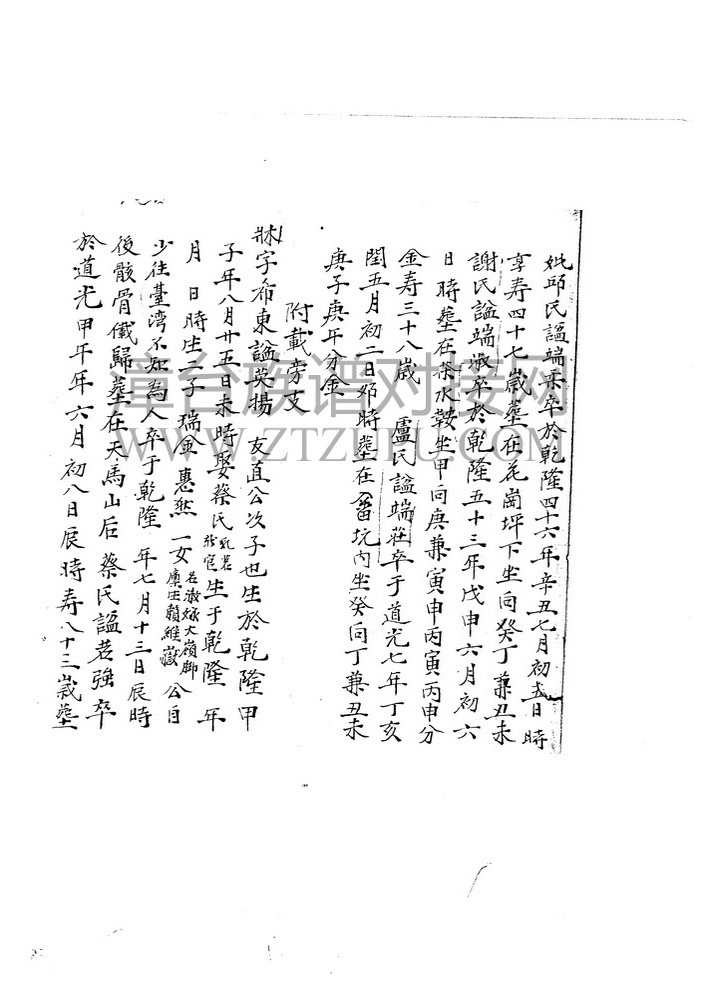 妣邱氏謚端柔卒於乾隆四十六年辛丑七月初五日 時
享寿四十七歲墓在花崗坪下坐向癸丁兼丑未
謝氏謚端淑卒於乾隆五十三年戊申六月初六
日 時墓在 水鞍坐甲向庚兼寅申丙寅丙申分
金寿三十八歲 盧氏謚端莊卒于道光七年丁亥
閏五月初二日夘時墓在畬坑内坐癸向丁兼丑未
庚子庚午分金
附載旁支
字布東謚英揚 友直公次子也生於乾隆甲
子年八月廿五日未時娶蔡氏乳名 生于乾隆 年
月 日時生二子 瑞金 惠然 一女名淑 大嶺脚 賴維嶽 公自
少往臺湾不知為人卒于乾隆 年七月十三日辰時
後骸骨儎歸墓在天馬山后 蔡氏謚 強卒
於道光甲午年六月初八日辰時寿八十三歲墓
章台族谱对接网
WWW.ZTZUPU.COM